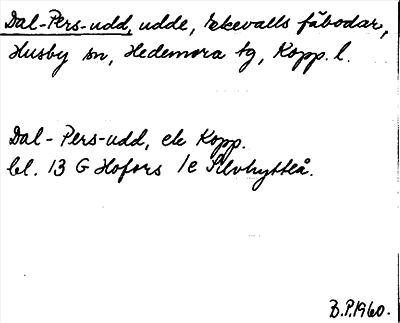 Dal-Pers-udd, udde, Rekevalls fäbodar,
Husby sn, Hedemora tg, Kopp. l.
Dal-Pers-udd, ek Kopp.
bl. 13 G Hofors 1e Silvhytteå.
B.P. 1960.